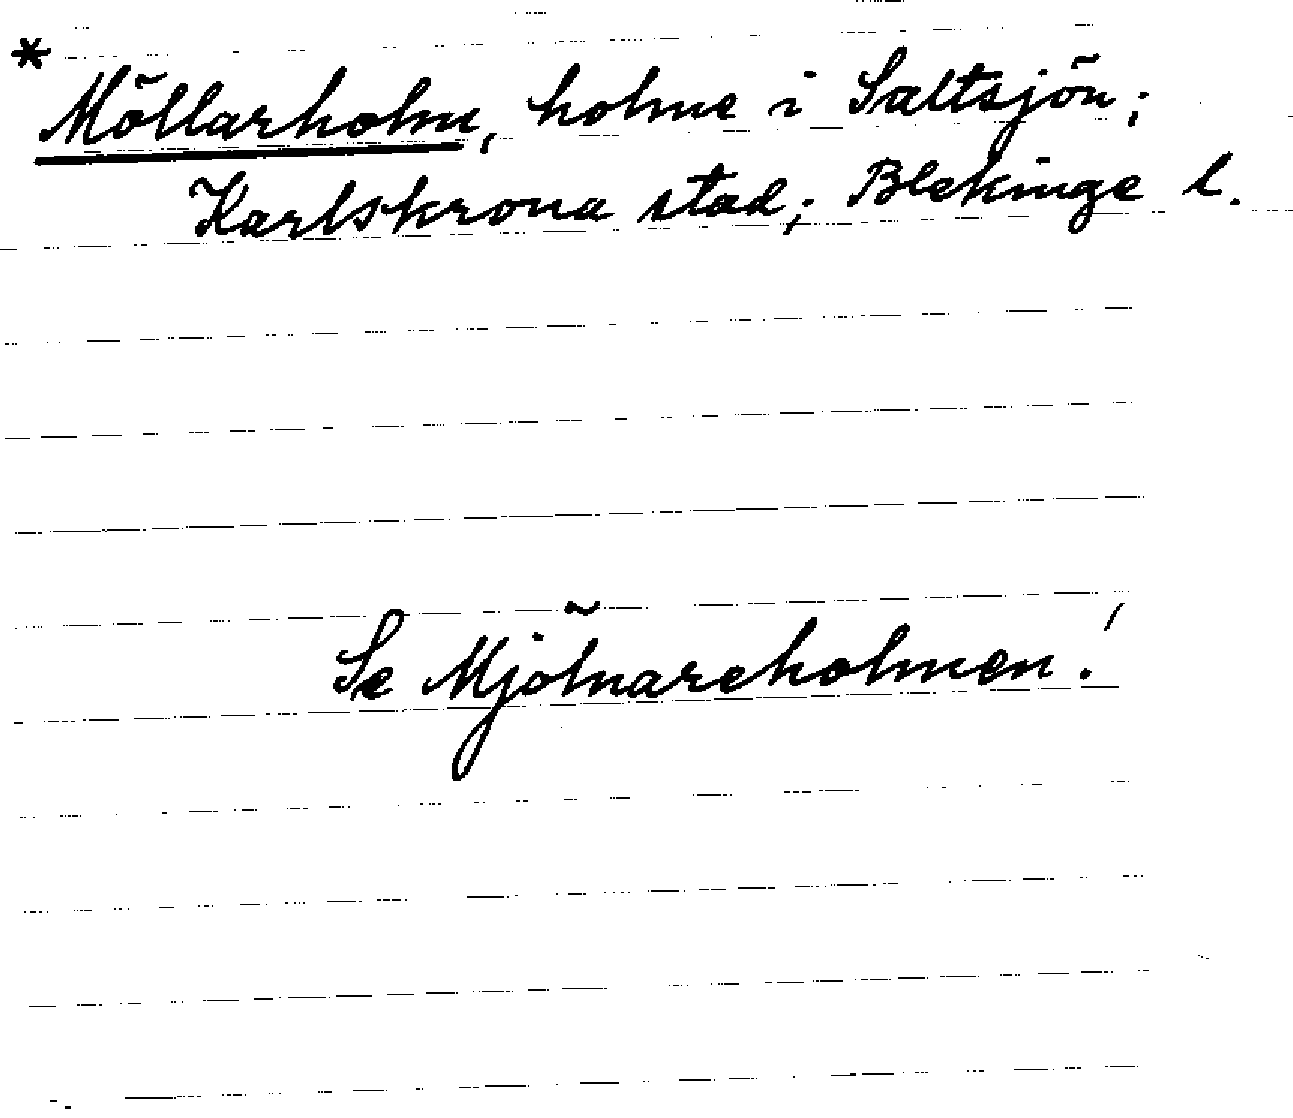 * Möllarholm, holme i Saltsjön;
Karlskrona stad; Blekinge l.
Se Mjölnareholmen!